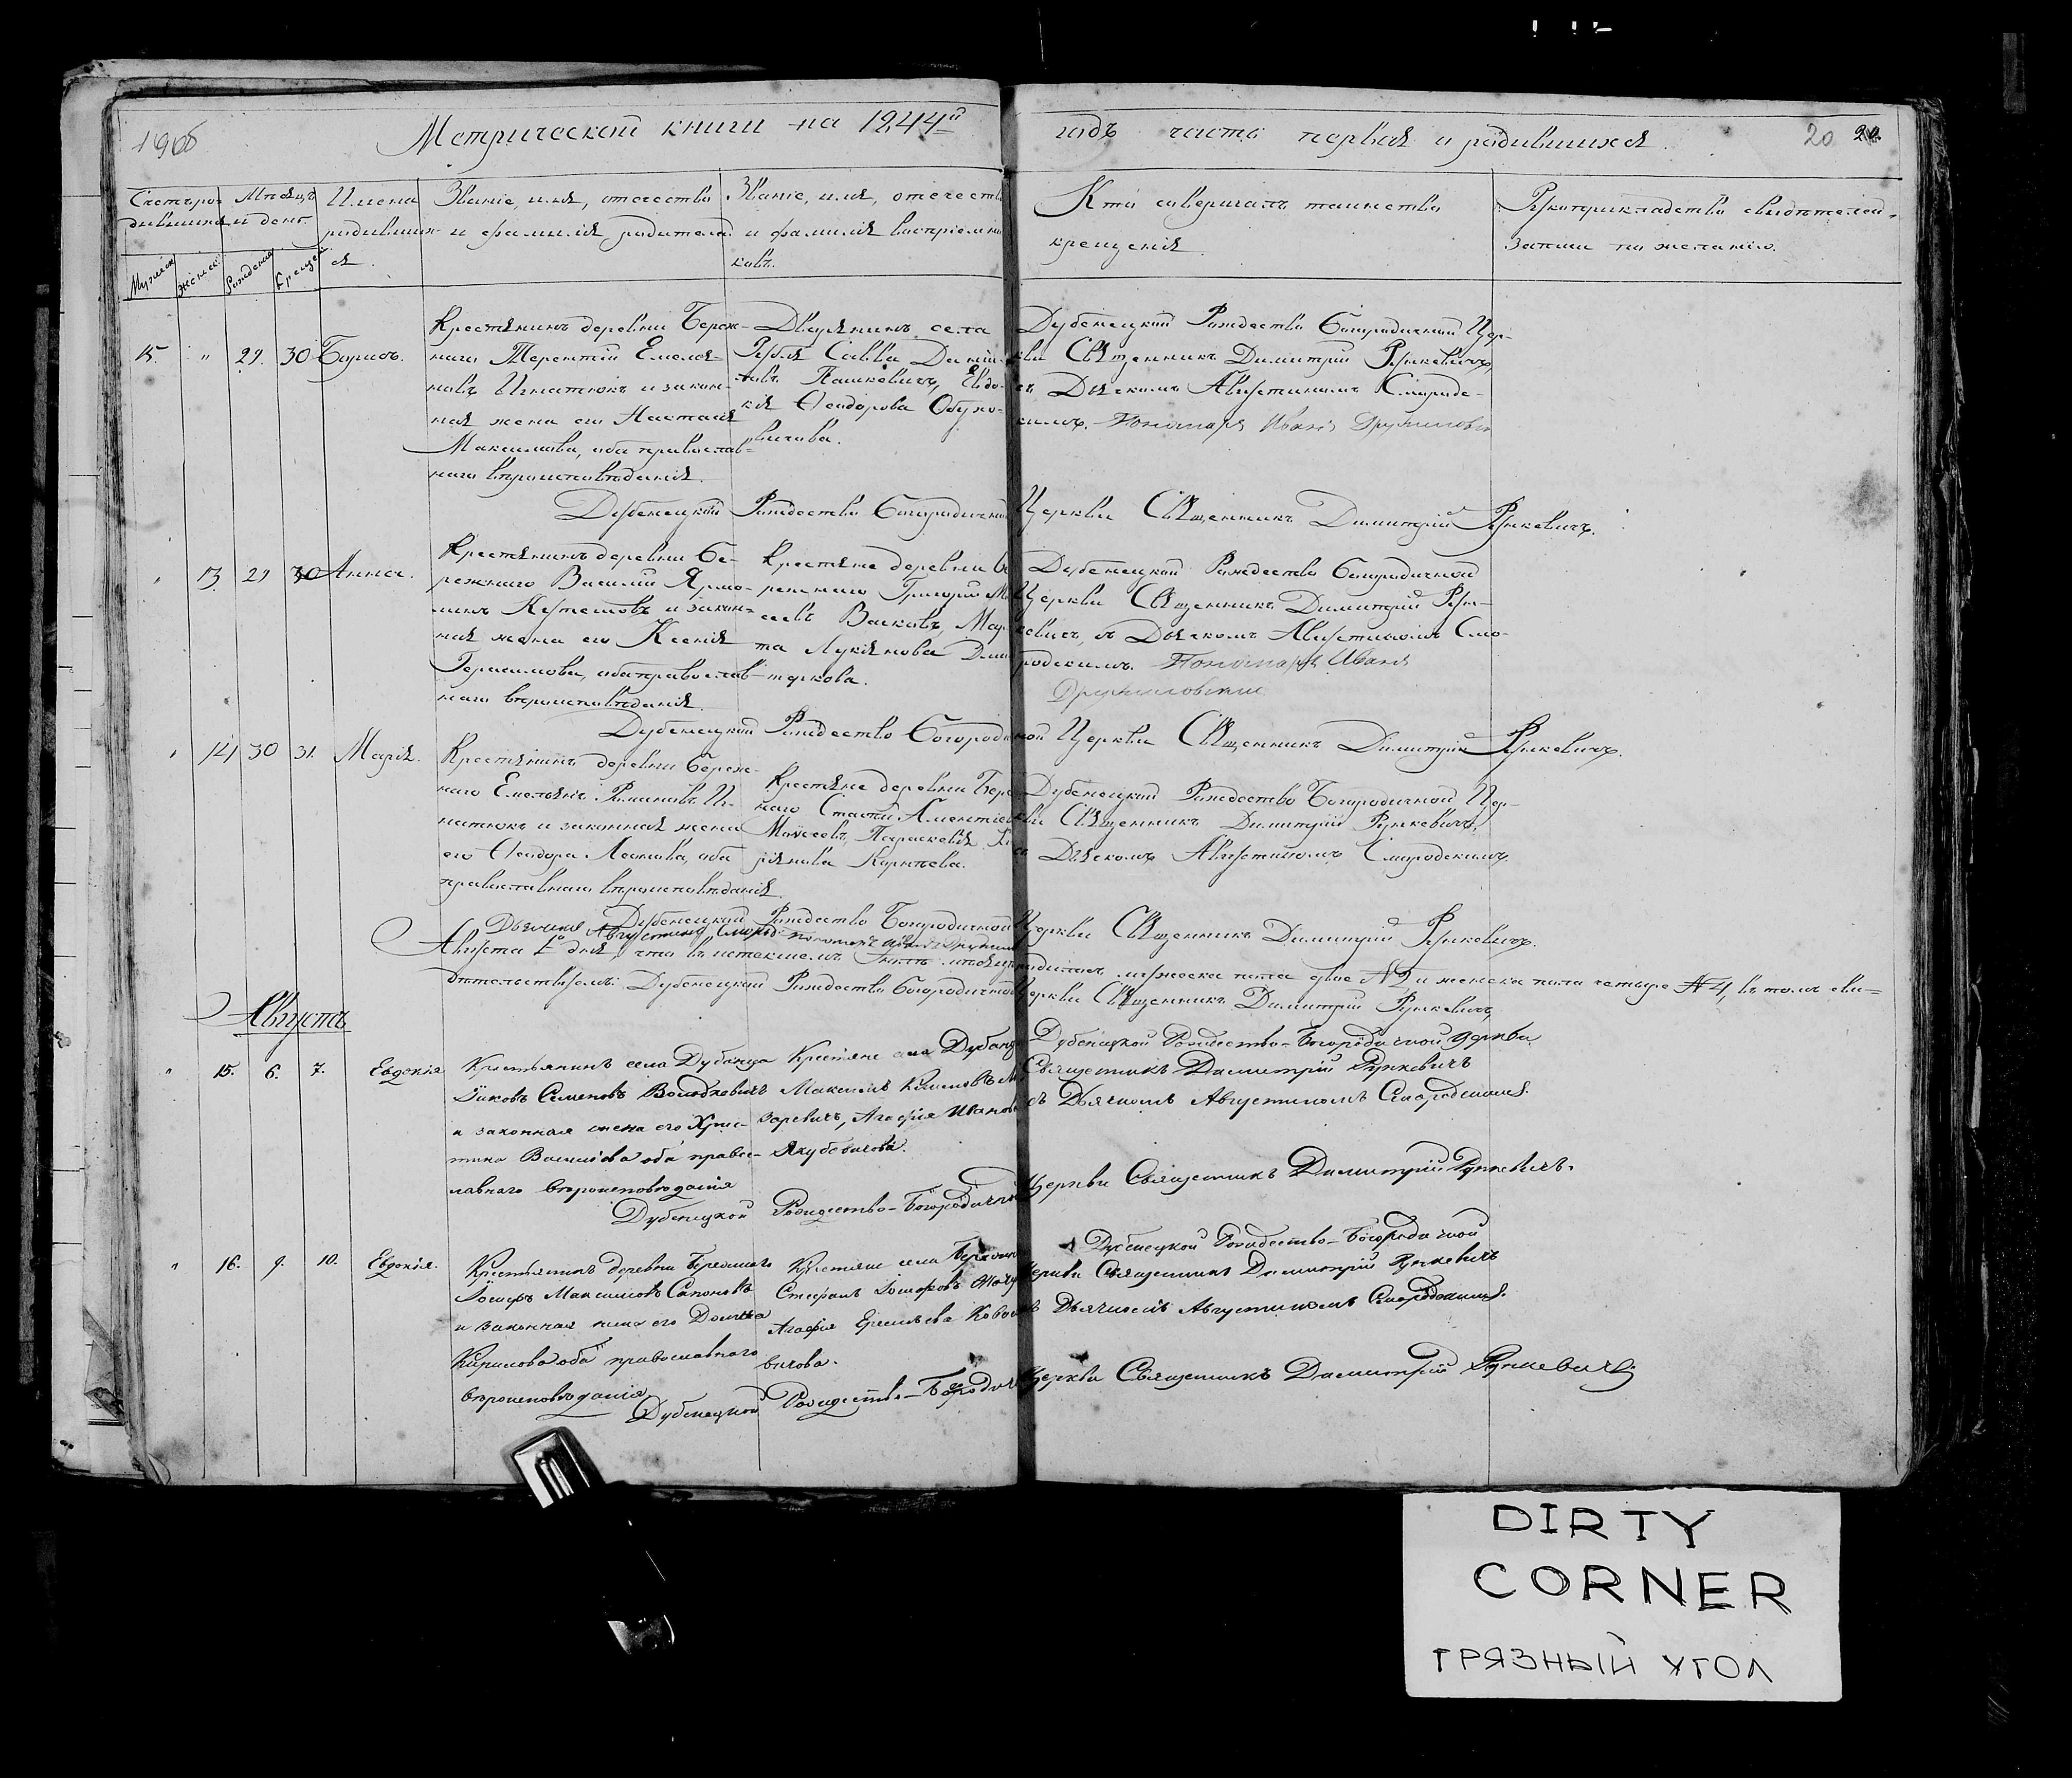 Метрической книги на 1844й годъ часть первая о родившихся.
20
Счетъ родившихся
Мѣсяцъ и день
Имена родившихся.
Званіе, имя, отечество и фамилія родителей
Званіе, имя, отечество и фамилія воспріемниковъ.
Кто совершалъ таинство крещенія.
Рукоприкладство свидѣтелей записи по желанію.
Мужеск
женск
Рожденія
Крещен
15. " 29. 30 Борисъ.
Крестьянинъ деревни Береж-
наго Терентій Емелья-
новъ Игнатюкъ и закон-
ная жена его Настасія
Максимова, оба православ-
наго вѣроисповѣданія.
Дворянинъ села
Рубля Савва Дани-
ловъ Пашкевичъ, Евдо-
кія Ѳеодорова Обухо-
вичова.
Дубенецкой Рождество Богородичной Цер-
кви Священникъ Димитрій Рункевичъ,
съ Дьякомъ Августиномъ Смородс-
кимъ. Пономаря Ивана
Дубенецкой Рождество Богородичной Церкви Священникъ Димитрій Рункевичъ.
" 13. 29 30 Анна.
Крестьянинъ деревни Бе-
режнаго Василій Ярмо-
и закон-
ная жена его Ксенія
Герасимова, оба православ-
наго вѣроисповѣданія.
Крестьяне деревни Бе
режнаго Григорій М
сеевъ Васковъ, Мар
та Лукьянова Дми
теркова.
Дубенецкой Рождество Богородичной
Церкви Священникъ Димитрій Рун-
кевичъ, съ Дьякомъ Августиномъ Смо-
родскимъ. Пономаря Ивана
Дубенецкой Рождество Богородичной Церкви Священникъ Димитрій Рункевичъ.
" 14 30 31. Марія.
Крестьянинъ деревни Береж-
наго Емельянъ Романовъ Иг-
натюкъ и законная жена
его Ѳеодора Леонова, оба
православнаго вѣроисповѣданія.
Крестьяне деревни Бере
жнаго
Моисеевъ, Параскевія
Дубенецкой Рождество Богородичной Цер-
кви Священникъ Димитрій Рункевичъ,
съ Дьякомъ Августиномъ Смородскимъ.
Дубенецкой Рождество Богородичной Церкви Священникъ Димитрій Рункевичъ.
Дьячекъ Августинъ Смород
Августа 1го дня, что въ истекшемъ Іюлѣ мѣсяцѣ родилось мужеска пола двое № 2 и женска пола четыре № 4, въ томъ сви-
дѣтельствуемъ: Дубенецкой Рождество Богородичной Церкви Священникъ Димитрій Рункевичъ,
Августъ
" 15. 6. 7. Евдокія
Крестьянинъ села Дубенца
Яковъ Семеновъ Володкевичъ
и законная жена его Хрис-
тина Васильева оба правос-
лавнаго вѣроисповѣданія
Крестьяне села Дубенца
Максимъ
заревичъ, Агафія Иванов
Якубовичова.
Дубенецкой Рождество-Богородичной Церкви
Священникъ Димитрій Рункевичъ
съ Дьячкомъ Августиномъ Смородскимъ.
Дубенецкой Рождество-Богородичной Церкви Священникъ Димитрій Рункевичъ.
" 16. 9. 10. Евдокія.
Крестьянинъ деревни Бережнаго
Іосифъ Максимовъ
и законная жена его Домна
Кирилова оба православнаго
вѣроисповѣданія
Крестьяне села Бережна
Стефанъ Іосифовъ
Агафія
вичова.
Дубенецкой Рождество-Богородичной
Церкви Священникъ Димитрій Рункевичъ
съ Дьячкомъ Августиномъ Смородскимъ.
Дубенецкой Рождество-Богородичной Церкви Священникъ Димитрій Рункевичъ
DIRTY
CORNER
ГРЯЗНЫЙ УГОЛ